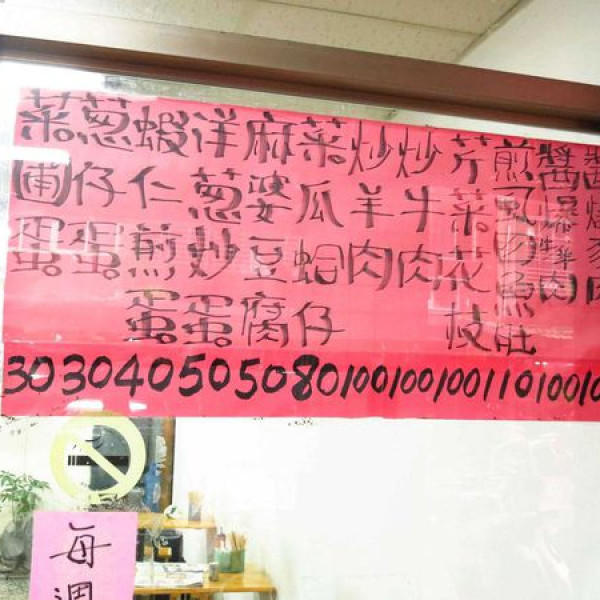 菜圃蛋
葱仔蛋
蝦仁煎蛋
洋葱炒蛋
麻婆豆腐
菜瓜蛤仔
炒羊肉
炒牛肉
芹菜花枝
煎虱目魚肚
醬爆肉
醬燒肉
30 30 40 50 50 80 100 100 100 110 100 10
每週